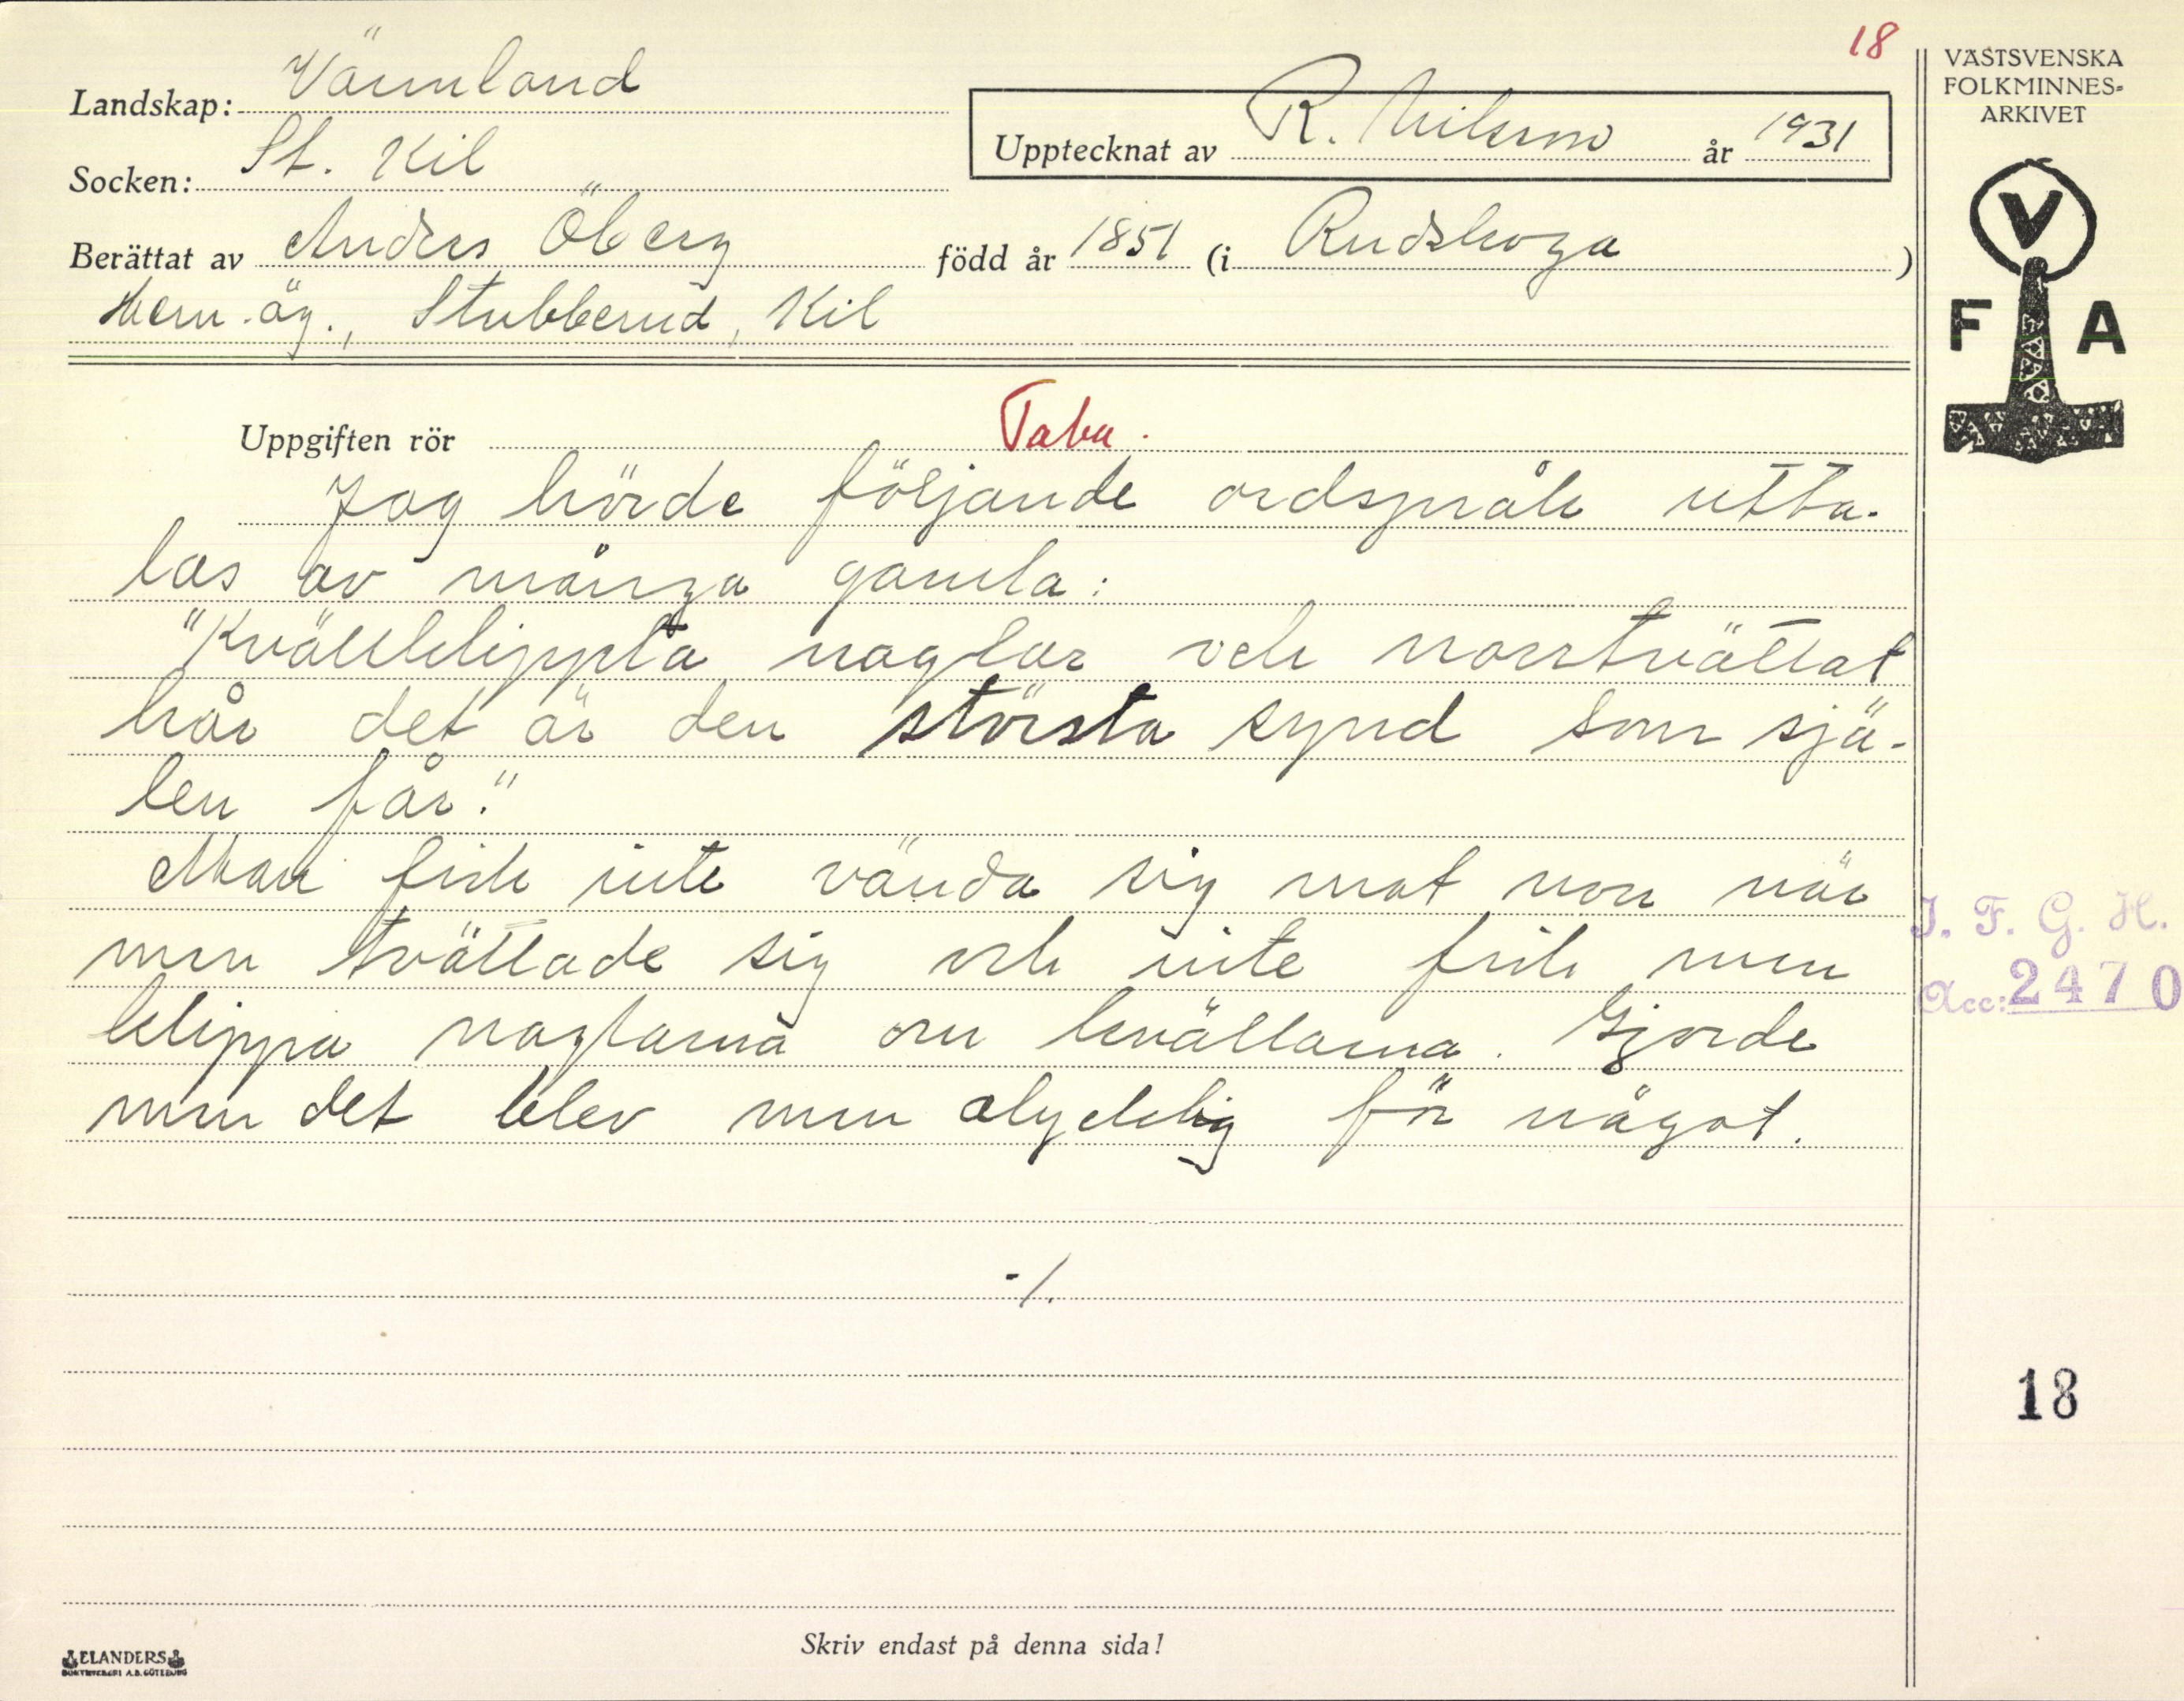 18
VÄSTSVENSKA
FOLKMINNES-
ARKIVET
Landskap: Värmland
Upptecknat av R. Nilsson år 1931
Socken: St. Kil
Berättat av Anders Öberg född år 1851 (i Rudskoga)
Hem.äg., Stubberud, Kil
V
F A
Uppgiften rör Tabu.
Jag hörde följande ordspråk utta-
las av många gamla:
"Kvällklippta naglar och norrtvättat
hår det är den största synd som sjä-
len får."
Man fick inte vända sig mot norr när
man tvättade sig och inte fick man
klippa naglarna om kvällarna. Gjorde
man det blev man olycklig för något.
-/.
I. F. G. H.
Acc: 2470
18
Skriv endast på denna sida!
ELANDERS
BOKTRYCKERI A.B. GÖTEBORG